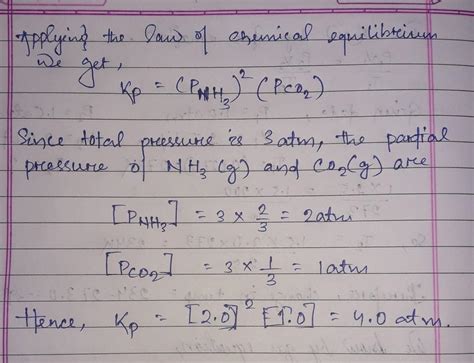 Applying the law of chemical equilibrium
we get,
Kp = (P_NH₃)² (P_CO₂)
Since total pressure is 3 atm, the partial
pressure of NH₃(g) and CO₂(g) are
[P_NH₃] = 3 × 2/3 = 2 atm
[P_CO₂] = 3 × 1/3 = 1 atm
Hence, Kp = [2.0]² [1.0] = 4.0 atm.